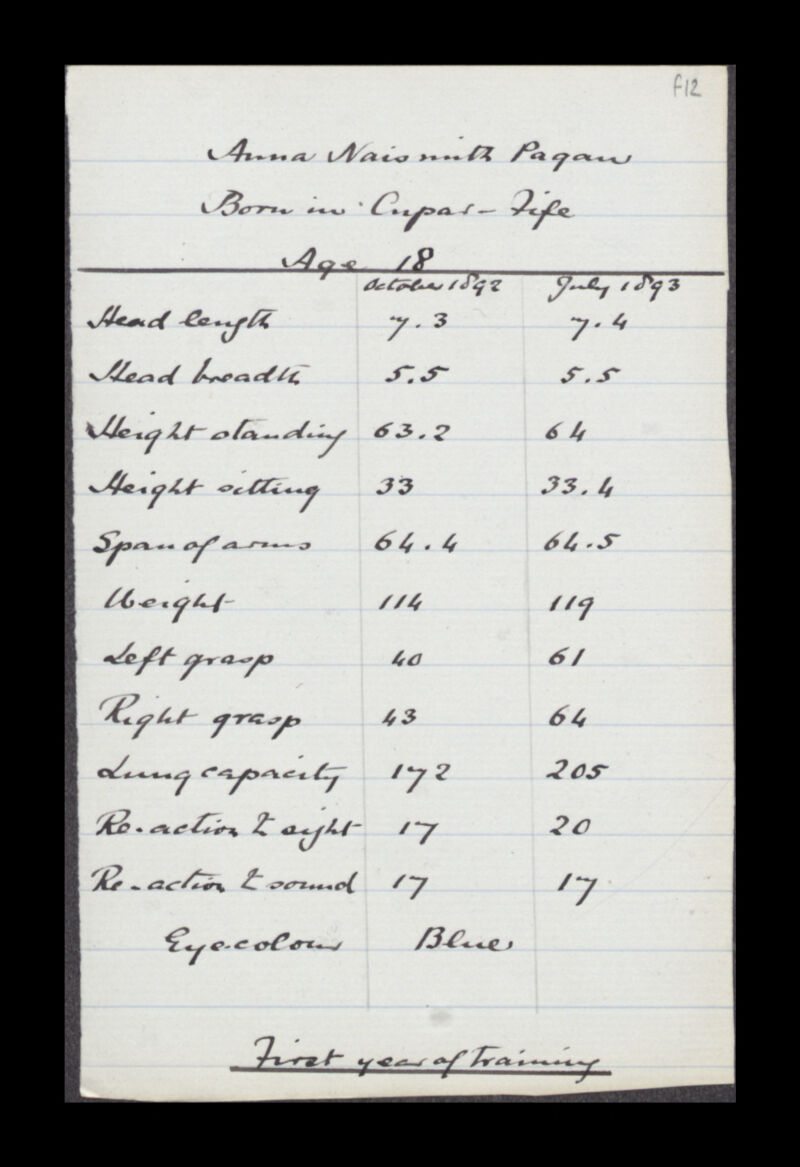 f12
Anna Naismith Pagan
Born in Cupar - Fife
Age 18
October 1892 July 1893
Head length 7.3 7.4
Head breadth 5.5 5.5
Height standing 63.2 64
Height sitting 33 33.4
Span of arms 64.4 64.5
Weight 114 119
Left grasp 40 61
Right grasp 43 64
Lung capacity 172 205
Re-action to sight 17 20
Re-action to sound 17 17
Eye-colour Blue
First year of training